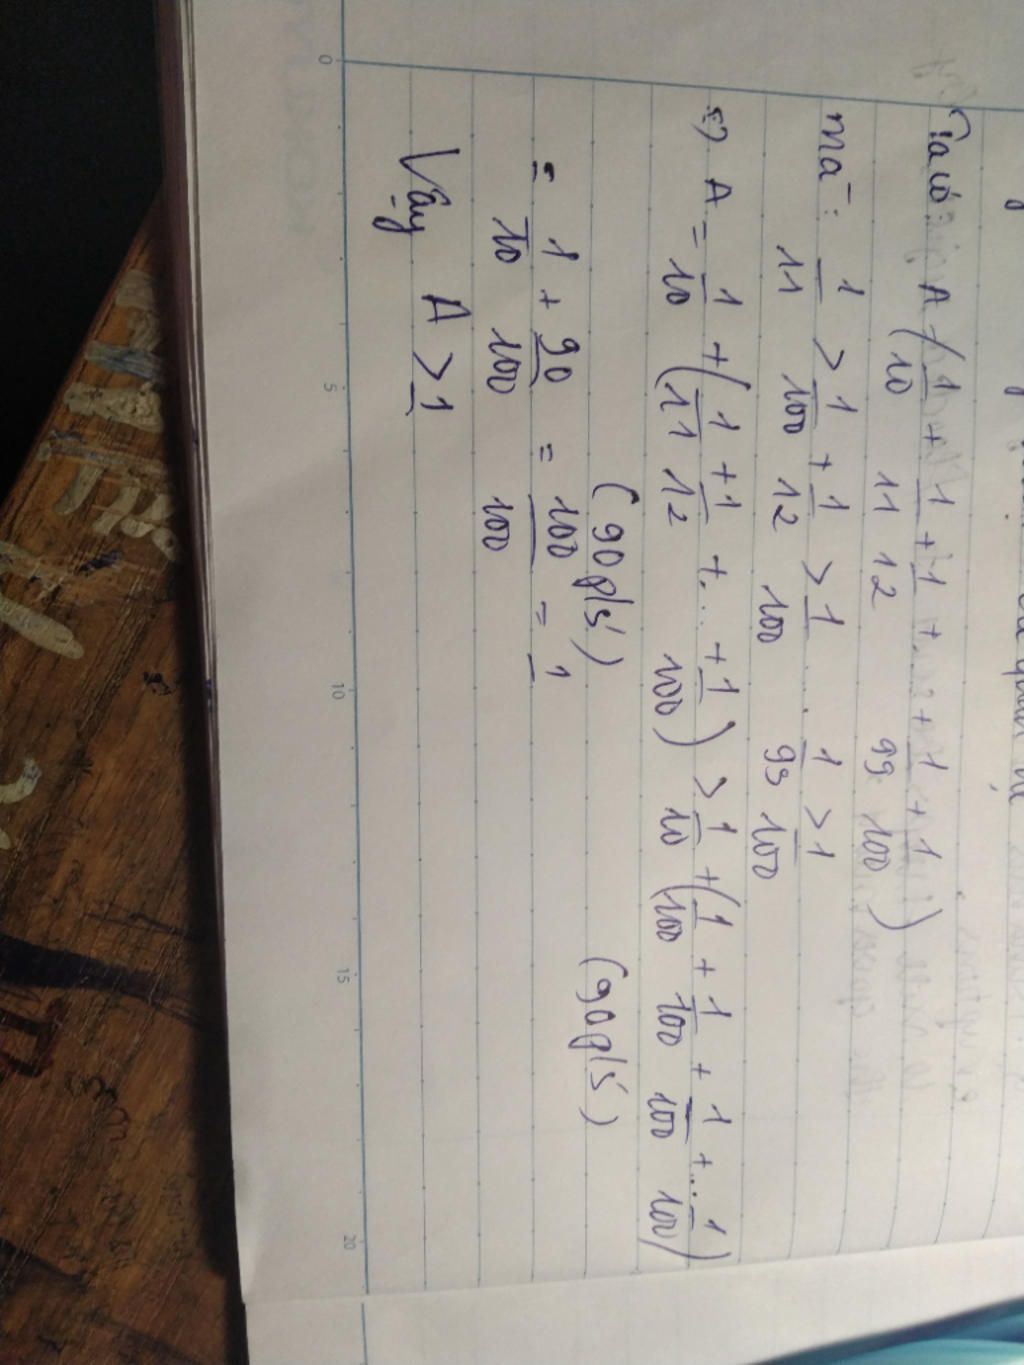 Ta có: A ( 1/10 + 1/11 + 1/12 + ... + 1/99 + 1/100 )
mà: 1/11 > 1/100 + 1/12 > 1/100 ... 1/99 > 1/100
=> A = 1/10 + ( 1/11 + 1/12 + ... + 1/100 ) > 1/10 + ( 1/100 + 1/100 + 1/100 + ... 1/100 )
(90 p/s') (90 p/s')
= 1/10 + 90/100 = 100/100 = 1
Vậy A > 1
0 5 10 15 20